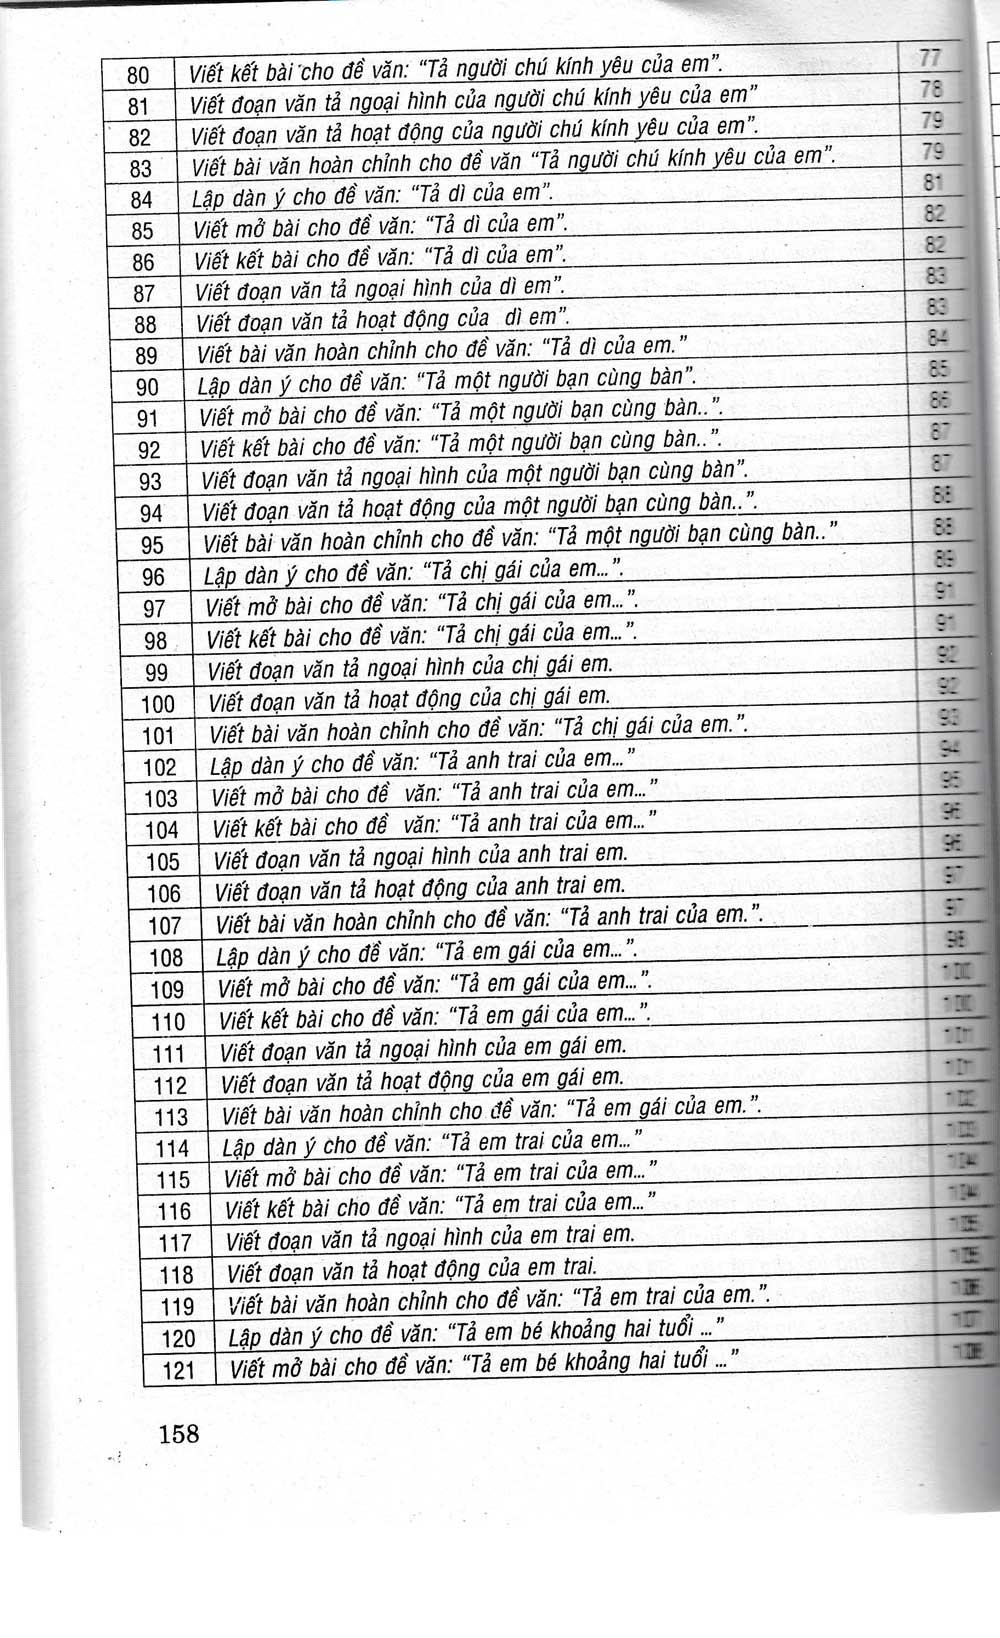 80 Viết kết bài cho đề văn: “Tả người chú kính yêu của em”. 77
81 Viết đoạn văn tả ngoại hình của người chú kính yêu của em” 78
82 Viết đoạn văn tả hoạt động của người chú kính yêu của em”. 79
83 Viết bài văn hoàn chỉnh cho đề văn “Tả người chú kính yêu của em”. 79
84 Lập dàn ý cho đề văn: “Tả dì của em”. 81
85 Viết mở bài cho đề văn: “Tả dì của em”. 82
86 Viết kết bài cho đề văn: “Tả dì của em”. 82
87 Viết đoạn văn tả ngoại hình của dì em”. 83
88 Viết đoạn văn tả hoạt động của dì em”. 83
89 Viết bài văn hoàn chỉnh cho đề văn: “Tả dì của em.” 84
90 Lập dàn ý cho đề văn: “Tả một người bạn cùng bàn”. 85
91 Viết mở bài cho đề văn: “Tả một người bạn cùng bàn..”. 86
92 Viết kết bài cho đề văn: “Tả một người bạn cùng bàn..”. 87
93 Viết đoạn văn tả ngoại hình của một người bạn cùng bàn”. 87
94 Viết đoạn văn tả hoạt động của một người bạn cùng bàn..”. 88
95 Viết bài văn hoàn chỉnh cho đề văn: “Tả một người bạn cùng bàn..” 88
96 Lập dàn ý cho đề văn: “Tả chị gái của em...”. 89
97 Viết mở bài cho đề văn: “Tả chị gái của em...”. 91
98 Viết kết bài cho đề văn: “Tả chị gái của em...”. 91
99 Viết đoạn văn tả ngoại hình của chị gái em. 92
100 Viết đoạn văn tả hoạt động của chị gái em. 92
101 Viết bài văn hoàn chỉnh cho đề văn: “Tả chị gái của em.”. 93
102 Lập dàn ý cho đề văn: “Tả anh trai của em...” 94
103 Viết mở bài cho đề văn: “Tả anh trai của em...” 95
104 Viết kết bài cho đề văn: “Tả anh trai của em...” 96
105 Viết đoạn văn tả ngoại hình của anh trai em. 96
106 Viết đoạn văn tả hoạt động của anh trai em. 97
107 Viết bài văn hoàn chỉnh cho đề văn: “Tả anh trai của em.”. 97
108 Lập dàn ý cho đề văn: “Tả em gái của em...”. 98
109 Viết mở bài cho đề văn: “Tả em gái của em...”. 100
110 Viết kết bài cho đề văn: “Tả em gái của em...”. 100
111 Viết đoạn văn tả ngoại hình của em gái em. 101
112 Viết đoạn văn tả hoạt động của em gái em. 101
113 Viết bài văn hoàn chỉnh cho đề văn: “Tả em gái của em.”. 102
114 Lập dàn ý cho đề văn: “Tả em trai của em...” 103
115 Viết mở bài cho đề văn: “Tả em trai của em...” 104
116 Viết kết bài cho đề văn: “Tả em trai của em...” 104
117 Viết đoạn văn tả ngoại hình của em trai em. 105
118 Viết đoạn văn tả hoạt động của em trai. 105
119 Viết bài văn hoàn chỉnh cho đề văn: “Tả em trai của em.”. 106
120 Lập dàn ý cho đề văn: “Tả em bé khoảng hai tuổi ...” 107
121 Viết mở bài cho đề văn: “Tả em bé khoảng hai tuổi ...” 108
158